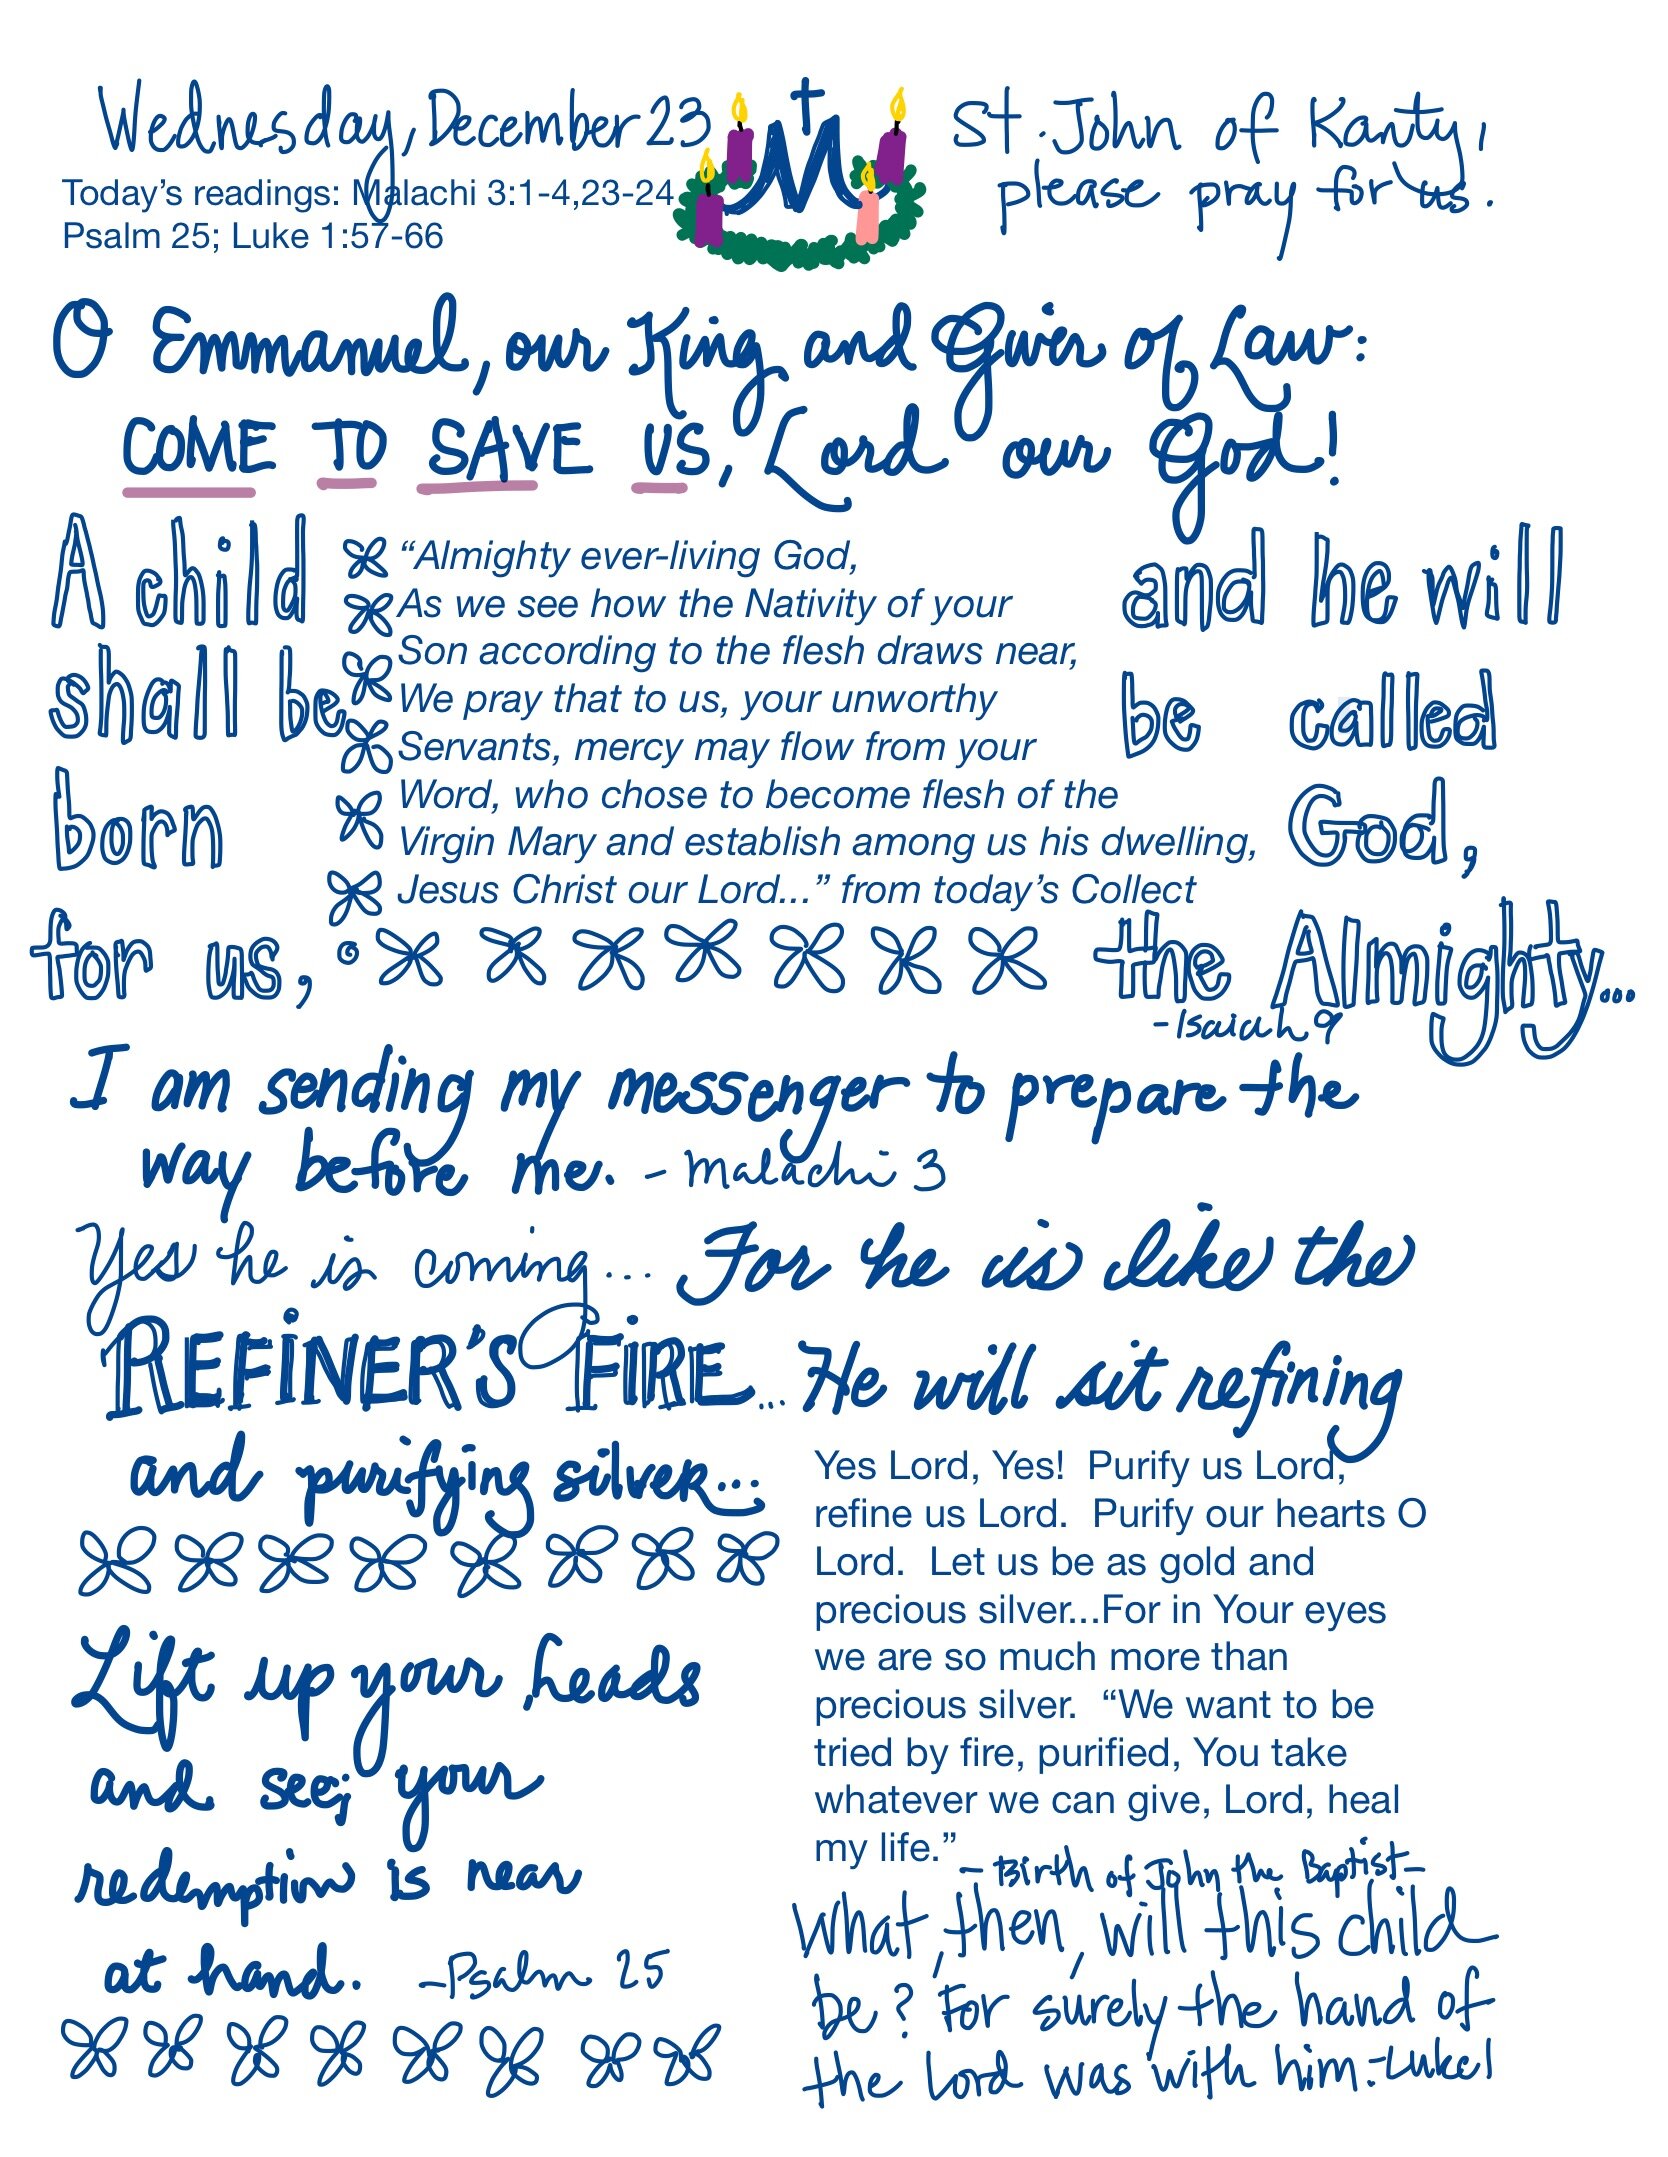 Wednesday, December 23
Today's readings: Malachi 3:1-4,23-24
Psalm 25; Luke 1:57-66
M
St. John of Kanty,
please pray for us.
O Emmanuel, our King and Giver of Law:
COME TO SAVE US, Lord our God!
A child
shall be
born
for us,
“Almighty ever-living God,
As we see how the Nativity of your
Son according to the flesh draws near,
We pray that to us, your unworthy
Servants, mercy may flow from your
Word, who chose to become flesh of the
Virgin Mary and establish among us his dwelling,
Jesus Christ our Lord...” from today's Collect
and he will
be called
God,
the Almighty...
-Isaiah 9
I am sending my messenger to prepare the
way before me. - Malachi 3
Yes he is coming... For he is like the
REFINER'S FIRE... He will sit refining
and purifying silver...
Yes Lord, Yes!  Purify us Lord,
refine us Lord.  Purify our hearts O
Lord.  Let us be as gold and
precious silver...For in Your eyes
we are so much more than
precious silver.  “We want to be
tried by fire, purified, You take
whatever we can give, Lord, heal
my life.”
Lift up your heads
and see; your
redemption is near
at hand. -Psalm 25
- Birth of John the Baptist-
What, then, will this child
be? For surely the hand of
the Lord was with him.-Luke 1